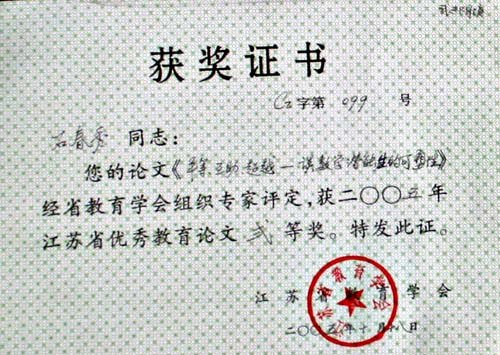 获奖证书
C2字第 099 号
石春秀 同志:
您的论文《平等 互助 超越一谈数学潜能生的可
经省教育学会组织专家评定,获二〇〇五年
江苏省优秀教育论文 贰 等奖。特发此证。
江苏省教育学会
二〇〇五年十月十八日